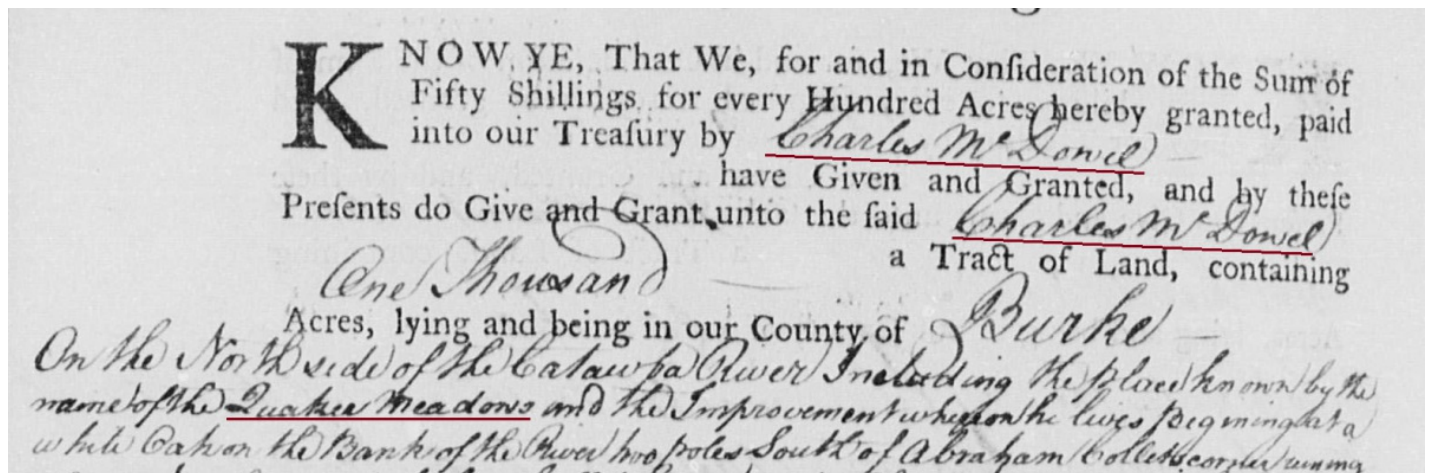 KNOW YE, That We, for and in Conſideration of the Sum of
Fifty Shillings for every Hundred Acres hereby granted, paid
into our Treaſury by Charles Mc Dowel
have Given and Granted, and by theſe
Preſents do Give and Grant unto the ſaid Charles Mc Dowel
a Tract of Land, containing
One Thousand
Acres, lying and being in our County of Burke
On the North side of the Catawba River Including the place known by the
name of the Quaker Meadows and the Improvement whereon he lives Begining at a
white Oak on the Bank of the River two poles South of Abraham Colletts corner runing